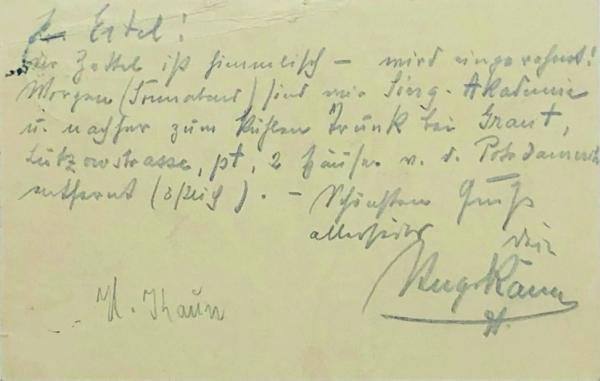 L. Ertel!
Der Zettel ist himmlisch – wird eingerahmt!
Morgen (Sonnabend) sind wir Sing-Akademie
u. nachher zum kühlen Trunk bei Graut,
Lützowstrasse, pt, 2 Häuser v. d. Potsdamerstr
entfernt (östlich). – Schönsten Gruß
allerseits Dein
Hugo Kaun
H. Kaun